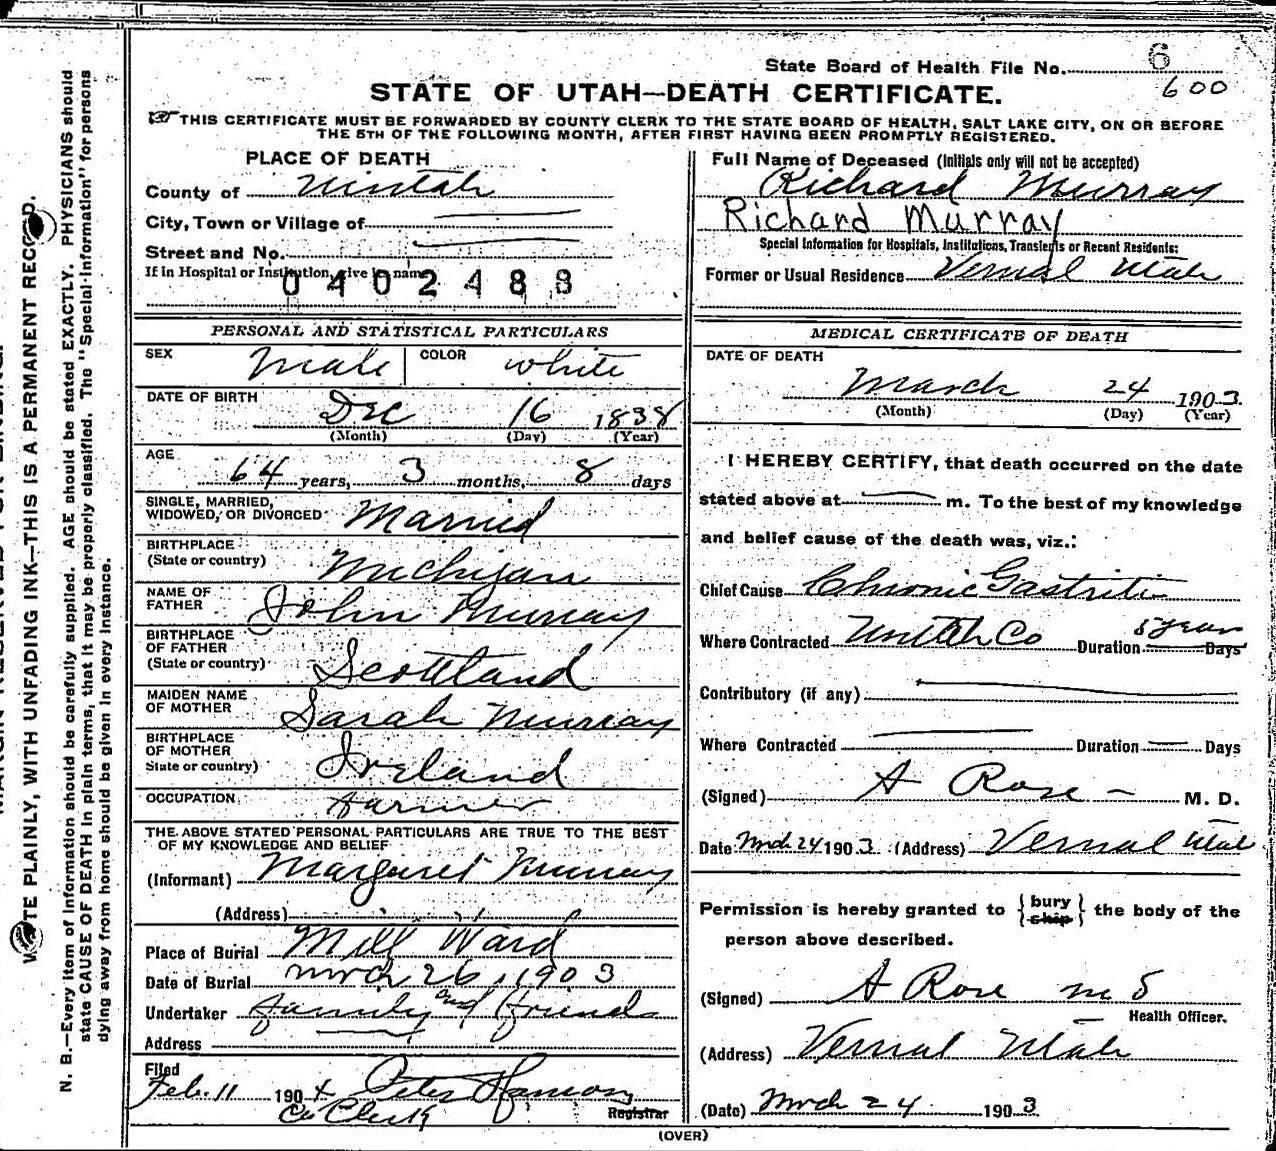 State Board of Health File No. 6
600
STATE OF UTAH—DEATH CERTIFICATE.
THIS CERTIFICATE MUST BE FORWARDED BY COUNTY CLERK TO THE STATE BOARD OF HEALTH, SALT LAKE CITY, ON OR BEFORE
THE 5TH OF THE FOLLOWING MONTH, AFTER FIRST HAVING BEEN PROMPTLY REGISTERED.
PLACE OF DEATH
County of Uintah
City, Town or Village of
Street and No.
If in Hospital or Institution, give its name
0402488
PERSONAL AND STATISTICAL PARTICULARS
SEX Male COLOR white
DATE OF BIRTH
Dec 16 1838
(Month) (Day) (Year)
AGE
64 years, 3 months, 8 days
SINGLE, MARRIED,
WIDOWED, OR DIVORCED Married
BIRTHPLACE
(State or country) Michigan
NAME OF
FATHER John Murray
BIRTHPLACE
OF FATHER
(State or country) Scottland
MAIDEN NAME
OF MOTHER Sarah Murray
BIRTHPLACE
OF MOTHER
State or country) Ireland
OCCUPATION farmer
THE ABOVE STATED PERSONAL PARTICULARS ARE TRUE TO THE BEST
OF MY KNOWLEDGE AND BELIEF
(Informant) Margaret Murray
(Address)
Place of Burial Mill Ward
Date of Burial Mrch 26, 1903
Undertaker family and friends
Address
Filed
Feb. 11 1904 Peter Hanson
Co Clerk Registrar
Full Name of Deceased (Initials only will not be accepted)
Richard Murray
Richard Murray
Special Information for Hospitals, Institutions, Transients or Recent Residents:
Former or Usual Residence Vernal Utah
MEDICAL CERTIFICATE OF DEATH
DATE OF DEATH
March 24 1903
(Month) (Day) (Year)
I HEREBY CERTIFY, that death occurred on the date
stated above at m. To the best of my knowledge
and belief cause of the death was, viz.:
Chief Cause Chronic Gastriti
Where Contracted Untah Co Duration 5 year Days
Contributory (if any)
Where Contracted Duration Days
(Signed) A Rose M. D.
Date Mrch 24 1903 (Address) Vernal Utah
Permission is hereby granted to { bury
ship } the body of the
person above described.
(Signed) A Rose M D
Health Officer.
(Address) Vernal Utah
(Date) Mrch 24 1903
(OVER)
WRITE PLAINLY, WITH UNFADING INK—THIS IS A PERMANENT RECORD.
N. B.—Every item of information should be carefully supplied. AGE should be stated EXACTLY. PHYSICIANS should
state CAUSE OF DEATH in plain terms, that it may be properly classified. The "Special Information" for persons
dying away from home should be given in every instance.